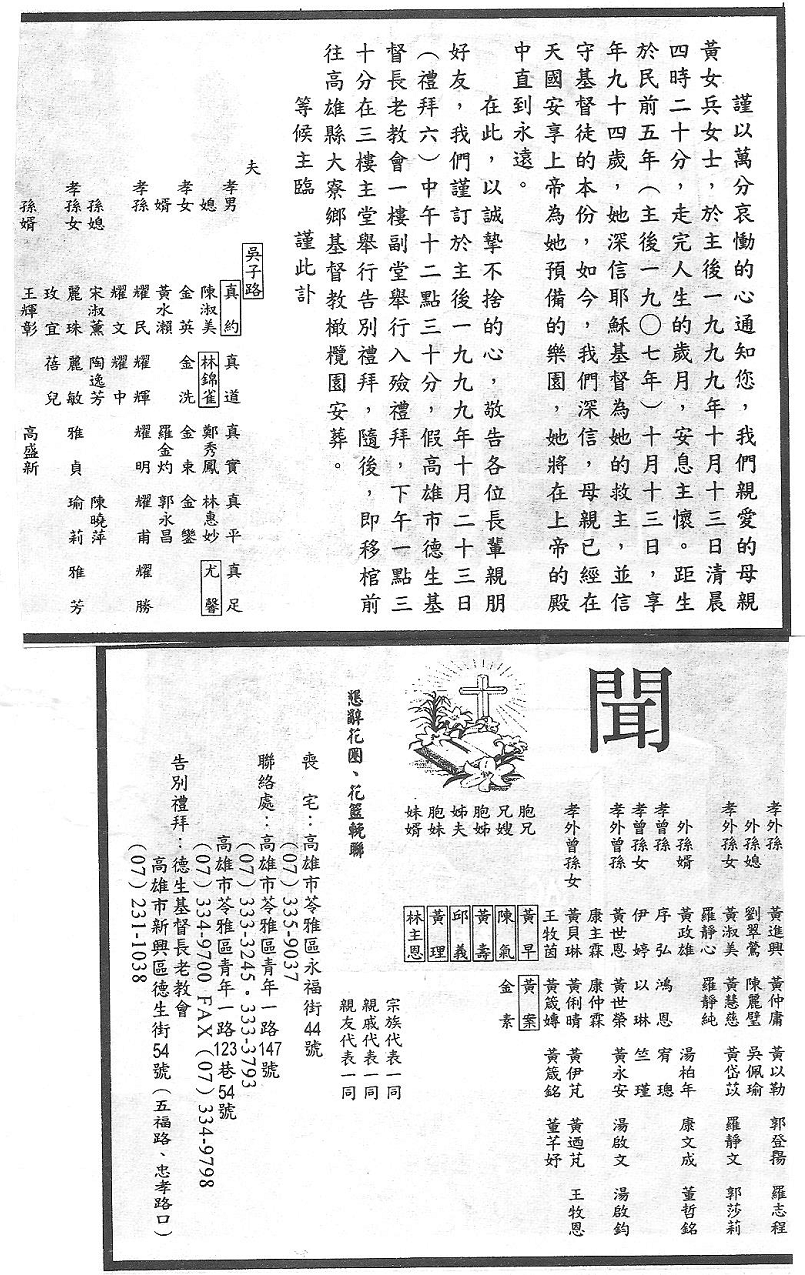 謹以萬分哀慟的心通知您,我們親愛的母親
黃女兵女士,於主後一九九九年十月十三日清晨
四時二十分,走完人生的歲月,安息主懷。距生
於民前五年(主後一九○七年)十月十三日,享
年九十四歲,她深信耶穌基督為她的救主,並信
守基督徒的本份,如今,我們深信,母親已經在
天國安享上帝為她預備的樂園,她將在上帝的殿
中直到永遠。
在此,以誠摯不捨的心,敬告各位長輩親朋
好友,我們謹訂於主後一九九九年十月二十三日
(禮拜六)中午十二點三十分,假高雄市德生基
督長老教會一樓副堂舉行入殮禮拜,下午一點三
十分在三樓主堂舉行告別禮拜,隨後,即移棺前
往高雄縣大寮鄉基督教橄欖園安葬。
等候主臨 謹此訃
夫 吳子路
孝男 真約 真道 真實 真平 真足
媳 陳淑美 林錦雀 鄭秀鳳 林惠妙 尤馨
孝女 金英 金洗 金束 金鑾
婿 黃水瀨 羅金灼 郭永昌
孝孫 耀民 耀輝 耀明 耀甫 耀勝
耀文 耀中
孫媳 宋淑薰 陶逸芳 陳曉萍
孝孫女 麗珠 麗敏 雅貞 瑜莉 雅芳
玫宜 蓓兒
孫婿 王輝彰 高盛新
聞
孝外孫 黃進興 黃仲庸 黃以勒 郭登揚 羅志程
外孫媳 劉翠鶯 陳麗璧 吳佩瑜
孝外孫女 黃淑美 黃慧慈 黃岱苡 羅靜文 郭莎莉
羅靜心 羅靜純
外孫婿 黃政雄 湯柏年 康文成 董哲銘
孝曾孫 序弘 鴻恩 宥璁
孝曾孫女 伊婷 以琳 竺瑾
孝外曾孫 黃世恩 黃世榮 黃永安 湯啟文 湯啟鈞
康主霖 康仲霖
孝外曾孫女 黃貝琳 黃俐晴 黃伊芃 黃迺芃 王牧恩
王牧茵 黃箴嫥 黃箴銘 董芊妤
胞兄 黃早 黃案
兄嫂 陳氣 金素
胞姊 黃壽
姊夫 邱義
胞妹 黃理
妹婿 林主恩
宗族代表一同
親戚代表一同
親友代表一同
懇辭花圈、花籃輓聯
喪宅:高雄市苓雅區永福街44號
(07)335-9037
聯絡處:高雄市苓雅區青年一路147號
(07)333-3245。333-3793
高雄市苓雅區青年一路123巷54號
(07)334-9700 FAX(07)334-9798
告別禮拜:德生基督長老教會
高雄市新興區德生街54號(五福路、忠孝路口)
(07)231-1038